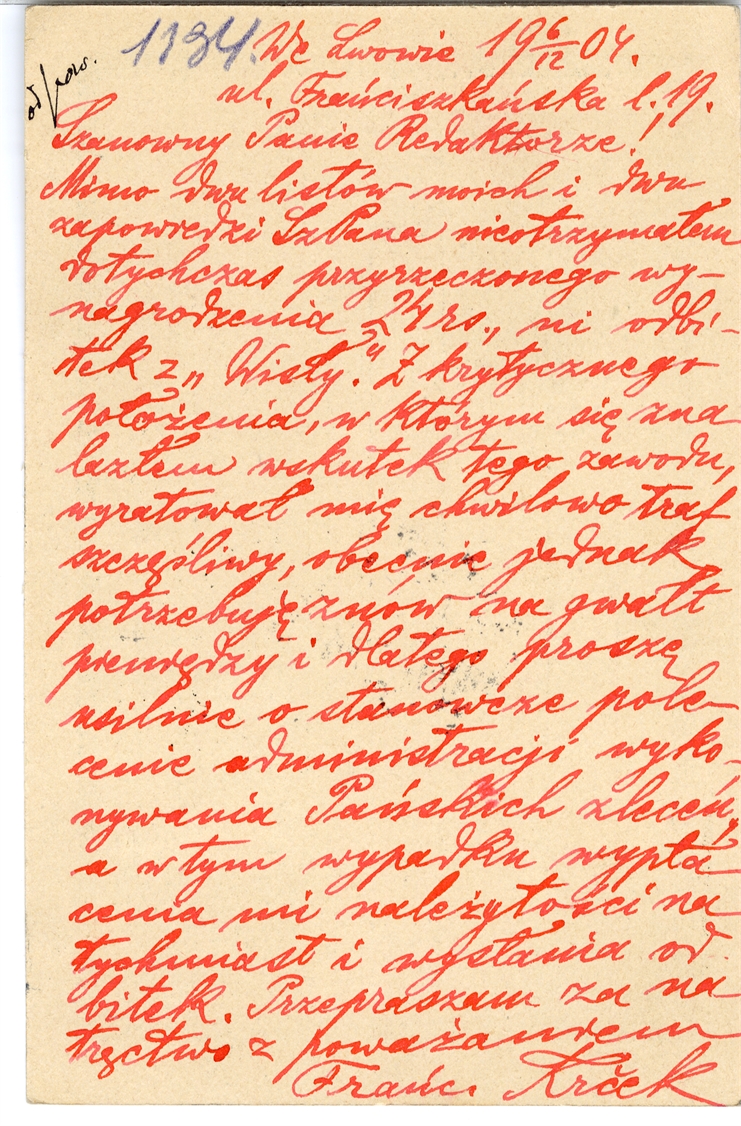 odpow.
1134. We Lwowie 19 6/12 04.
ul. Frańciszkańska l. 19.
Szanowny Panie Redaktorze!
Mimo dwu listów moich i dwu
zapowiedzi SzPana nieotrzymałem
dotychczas przyrzeczonego wy-
nagrodzenia 24 rs., ni odbi-
tek z „Wisły." Z krytycznego
położenia, w którym się zna
lazłem wskutek tego zawodu,
wyratował mię chwilowo traf
szczęśliwy, obecnie jednak
potrzebuję znów na gwałt
pieniędzy i dlatego proszę
usilnie o stanowcze pole-
cenie administracji wyko-
nywania Pańskich zleceń,
a w tym wypadku wypła
cenia mi należytości na
tychmiast i wysłania od
bitek. Przepraszam za na
tręctwo z poważaniem
Frańc. Krček